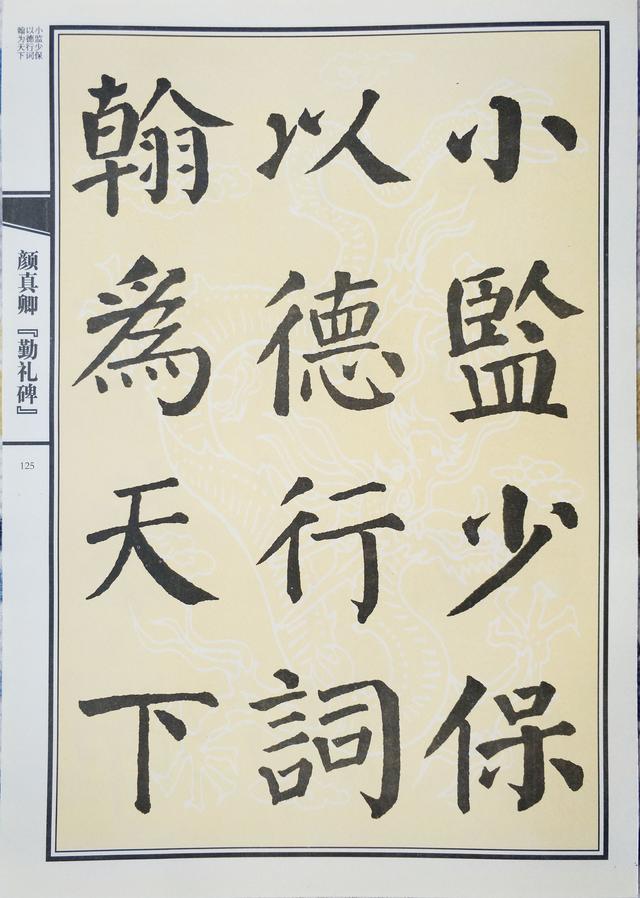 小監少保
以德行詞
翰為天下
小监少保
以德行词
翰为天下
颜真卿『勤礼碑』
125